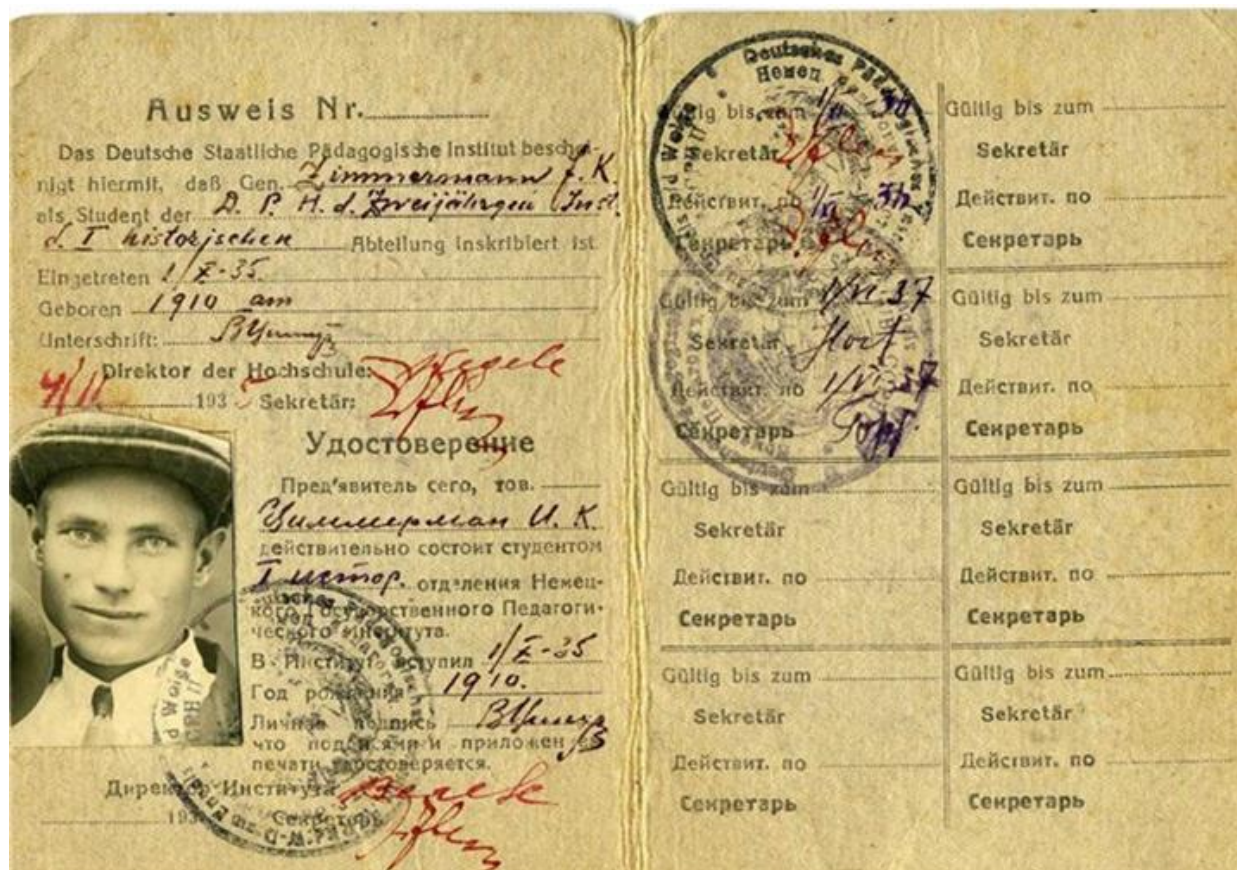 Ausweis Nr.
Das Deutsche Staatliche Pädagogische Institut beschei-
nigt hiermit, daß Gen. Zimmermann J. K.
als Student der D. P. H. d. Zweijährgen Inst.
d. I historjschen Abteilung inskribiert ist
Eingetreten 1/X-35.
Geboren 1910 am
Unterschrift:
Direktor der Hochschule:
4/II 1935 Sekretär:
Удостоверение
Пред'явитель сего, тов.
Циммерман И. К.
действительно состоит студентом
I истор. отделения Немец-
кого Государственного Педагоги-
ческого института.
В Институт вступил 1/X-35
Год рождения 1910.
Личная подпись
что подписями и приложен
печати удостоверяется.
Директор Института
193 Секретарь
Deutsches Pädagogisches
Gültig bis zum
Sekretär
Действит. по
Секретарь
Gültig bis zum 1/VI-37
Sekretär
Действит. по 1/VI 37
Секретарь
Gültig bis zum
Sekretär
Действит. по
Секретарь
Gültig bis zum
Sekretär
Действит. по
Секретарь
Gültig bis zum
Sekretär
Действит. по
Секретарь
Gültig bis zum
Sekretär
Действит. по
Секретарь
Gültig bis zum
Sekretär
Действит. по
Секретарь
Gültig bis zum
Sekretär
Действит. по
Секретарь